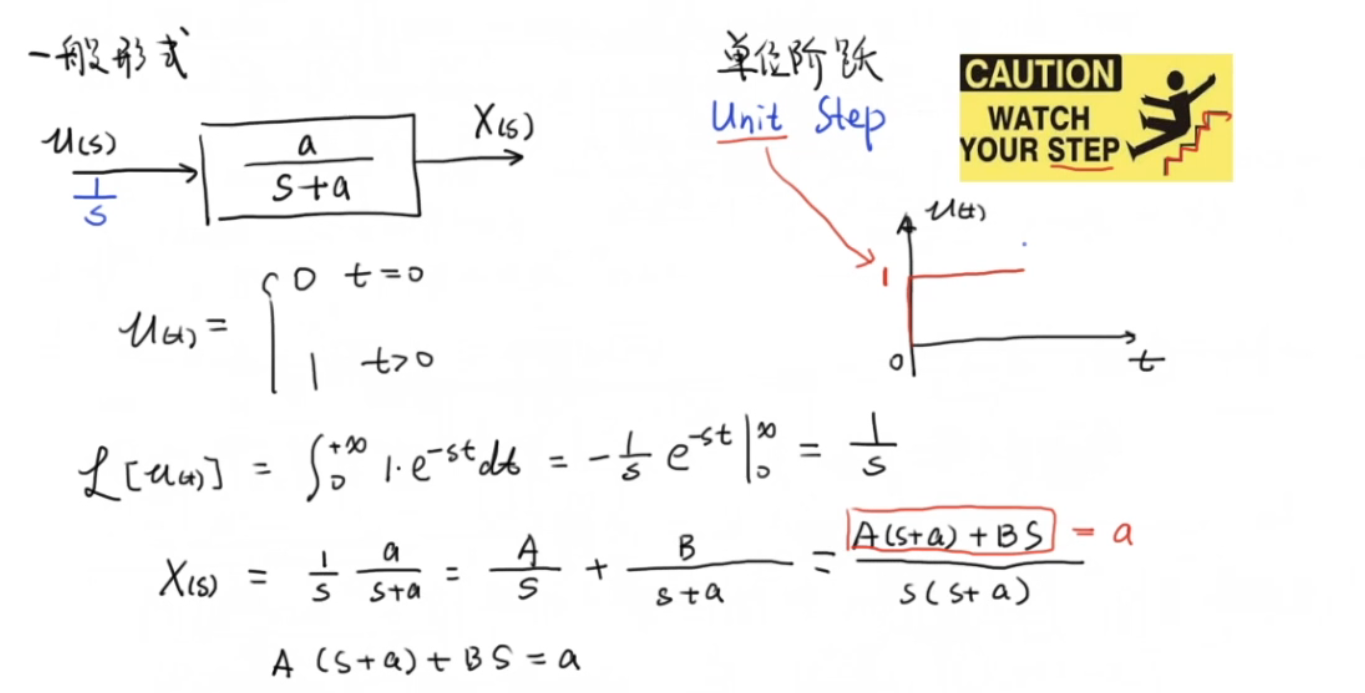 一般形式
单位阶跃
Unit Step
CAUTION
WATCH
YOUR STEP
U(s)
1/s
a/(s+a)
X(s)
u(t)
1
0
t
u(t) = { 0 t=0
1 t>0
ℒ[u(t)] = ∫₀^{+∞} 1·e^{-st}dt = -1/s e^{-st}|₀^∞ = 1/s
X(s) = 1/s a/(s+a) = A/s + B/(s+a) = (A(s+a)+BS)/(s(s+a)) = a
A (s+a)+BS = a